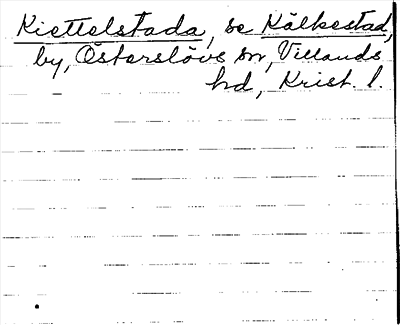 Kiettelstada, se Kälkestad,
by, Österslövs sn, Villands
hd, Krist. l.